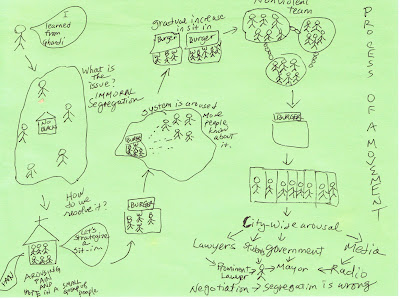 I
learned
from
Ghandi
What is
the
issue?
IMMORAL
Segregation
NO
How
do we
resolve it?
Let's
Strategize
a
Sit-in
AROUSING
PAIN
AND
HOPE IN A SMALL
group of people
BURGER
System is aroused
More
people
know
about
it.
BURGER
gradual increase
in sit in
Burger
Burger
Nonviolent
team
BURGER
City-Wide arousal
Lawyers
Students
Government
Media
Prominent
Lawyer
Mayor
Radio
Negotiation → Segregation is wrong
PROCESS OF A MOVEMENT